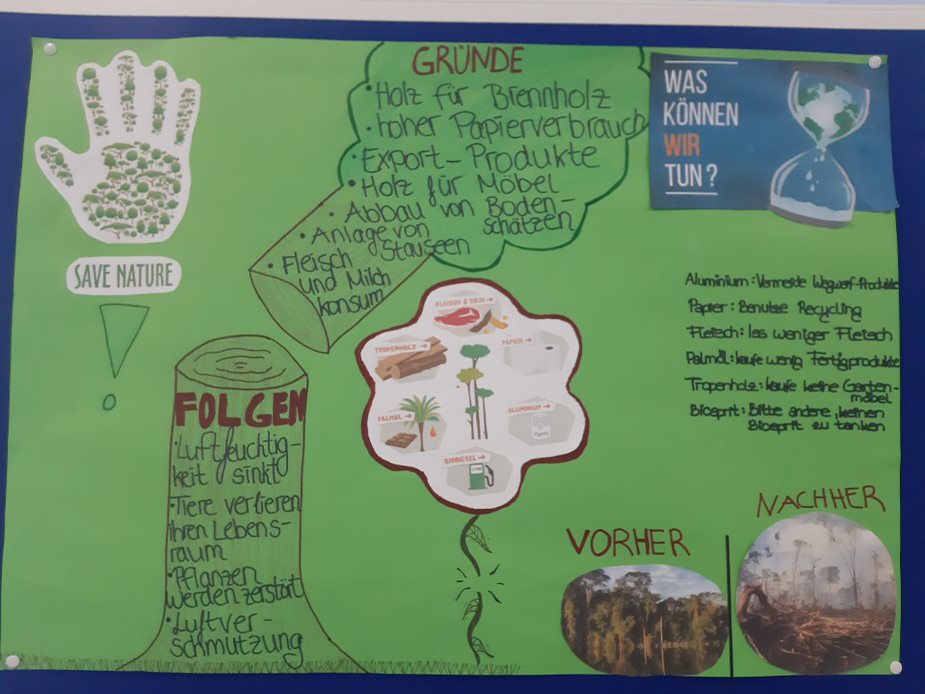 SAVE NATURE
GRÜNDE
• Holz für Brennholz
• hoher Papierverbrauch
• Export-Produkte
• Holz für Möbel
• Abbau von Boden-
schätzen
• Anlage von
Stauseen
• Fleisch
und Milch
konsum
WAS
KÖNNEN
WIR
TUN?
Aluminium: Vermeide Wegwerf-Produkte
Papier: Benutze Recycling
Fleisch: Iss weniger Fleisch
Palmöl: kaufe wenig Fertigprodukte
Tropenholz: kaufe keine Garten-
möbel
Biosprit: Bitte andere, keinen
Biosprit zu tanken
FLEISCH & SOJA →
TROPENHOLZ →
PAPIER →
PALMÖL →
ALUMINIUM →
BIODIESEL →
FOLGEN
• Luftfeuchtig-
keit sinkt
• Tiere verlieren
ihren Lebens-
raum
• Pflanzen
werden zerstört
• Luftver-
schmutzung
VORHER
NACHHER